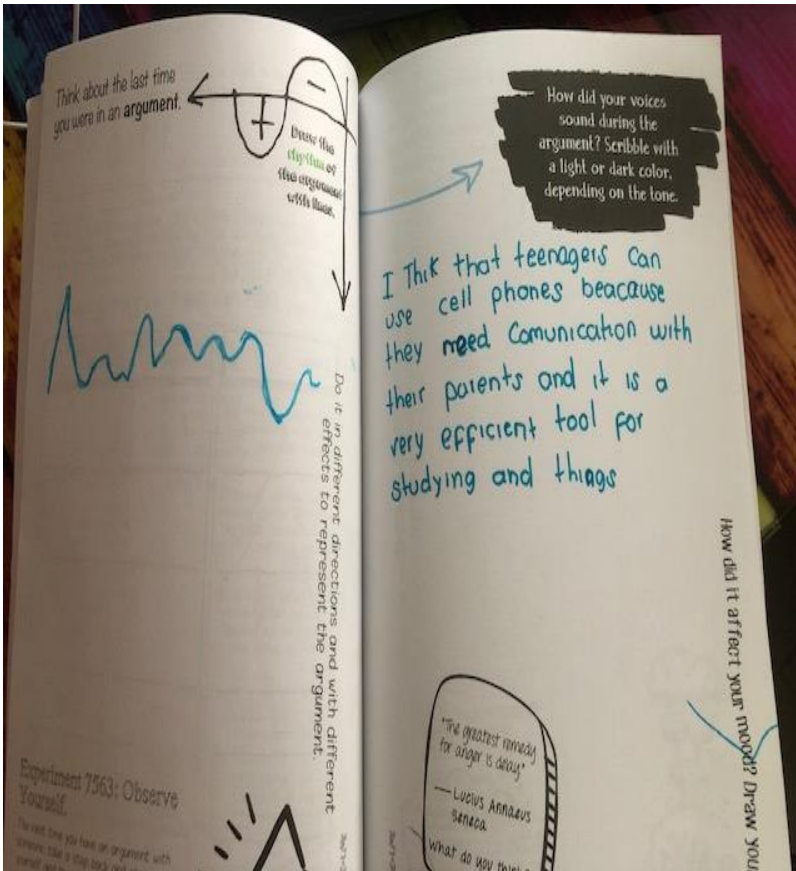 Think about the last time
you were in an argument.
Draw the
rhythm of
the argument
with lines.
Do it in different directions and with different
effects to represent the argument.
Experiment 7563: Observe
Yourself.
The next time you have an argument with
someone, take a step back and
How did your voices
sound during the
argument? Scribble with
a light or dark color,
depending on the tone.
I Thik that teenagers can
use cell phones beacause
they need Comunication with
their parents and it is a
very efficient tool for
studying and things
How did it affect your mood? Draw you
"The greatest remedy
for anger is delay."
— Lucius Annaeus
Seneca
What do you think